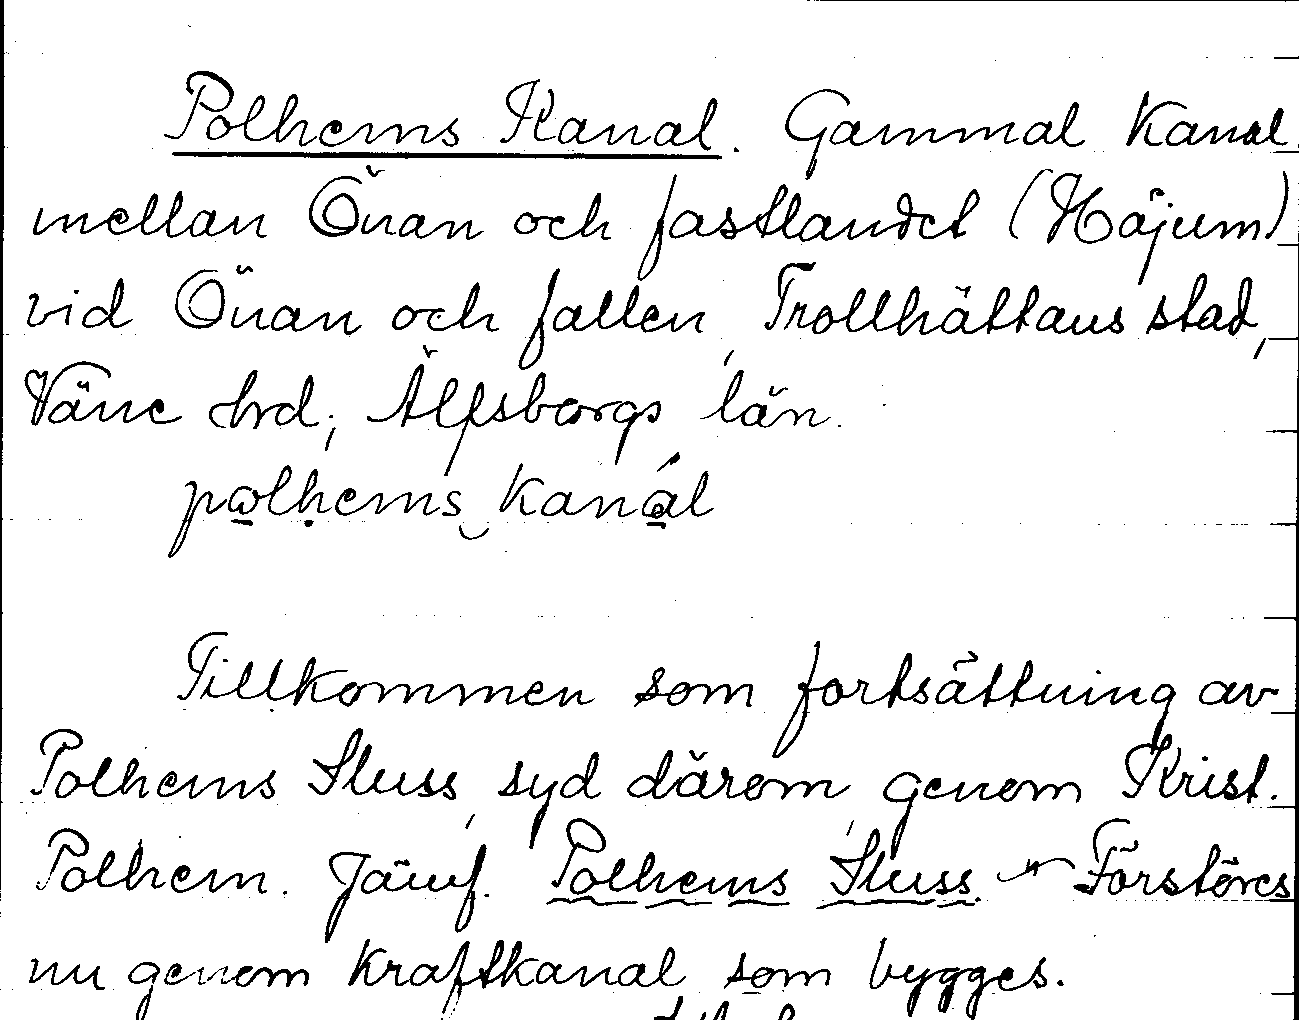 Polhems Kanal. Gammal Kanal
mellan Önan och fastlandet (Häjum)
vid Önan och fallen, Trollhättans stad,
Väne hrd; Älfsborgs län.
polhems kanál
Tillkommen som fortsättning av
Polhems Sluss, syd därom, genom Krist.
Polhem. Jämf. Polhems Sluss. Förstöres
nu genom Kraftkanal som bygges.